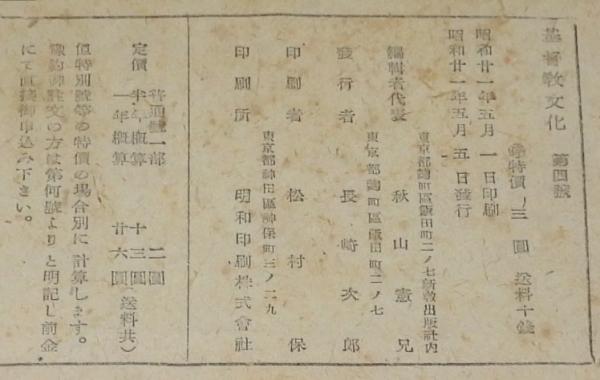 基督教文化 第四號
特價 三圓 送料十錢
昭和廿一年五月一日印刷
昭和廿一年五月五日發行
東京都麹町區飯田町二ノ七新教出版社内
編輯者代表 秋山憲兄
東京都麹町區飯田町二ノ七
發行者 長崎次郎
印刷者 松村保
東京都神田區神保町三ノ二九
印刷所 明和印刷株式會社
定價 普通號一部 二圓
半年概算 十三圓
一年概算 廿六圓(送料共)
但特別號等の特價の場合別に計算します。
豫約御註文の方は第何號よりと明記し前金
にて直接御申込み下さい。